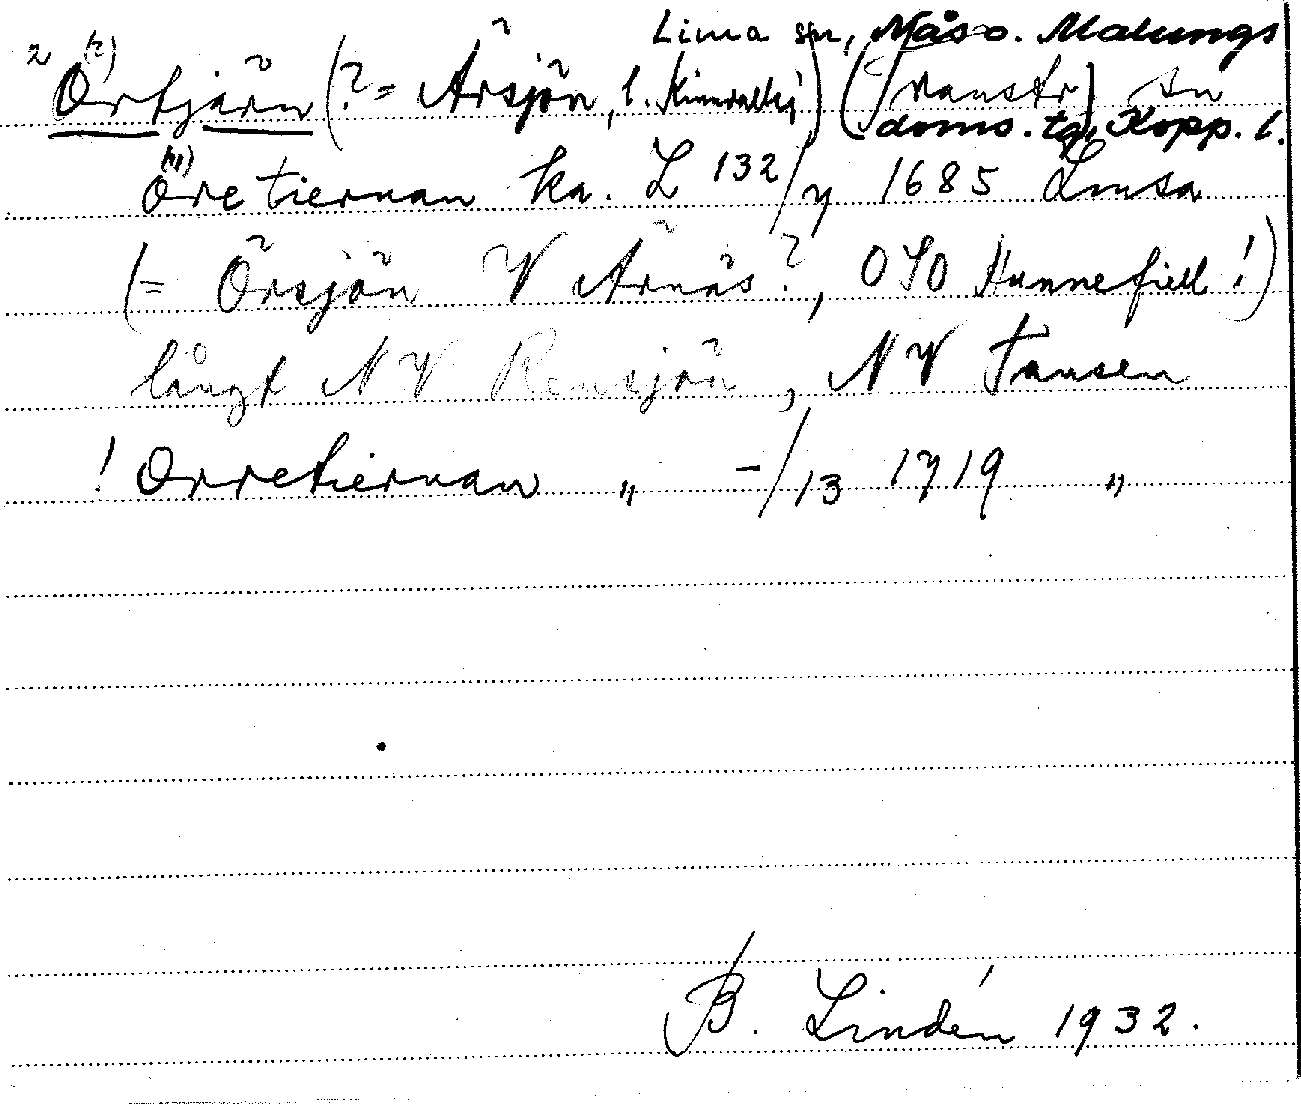 Lima sn, Nås o. Malungs
2 (?) Örtjärn (? = Årsjön, l. ) (Transtr) sn
doms. tg, Kopp. l.
(!!) Öretiernan ka. L 132/7 1685 Limsa
(= Örsjön V Årnäs?, OSO Hunnefiell!)
långt NV Rensjön, NV Tansen
! Orretiernan " –/13 1719 "
B. Lindén 1932.